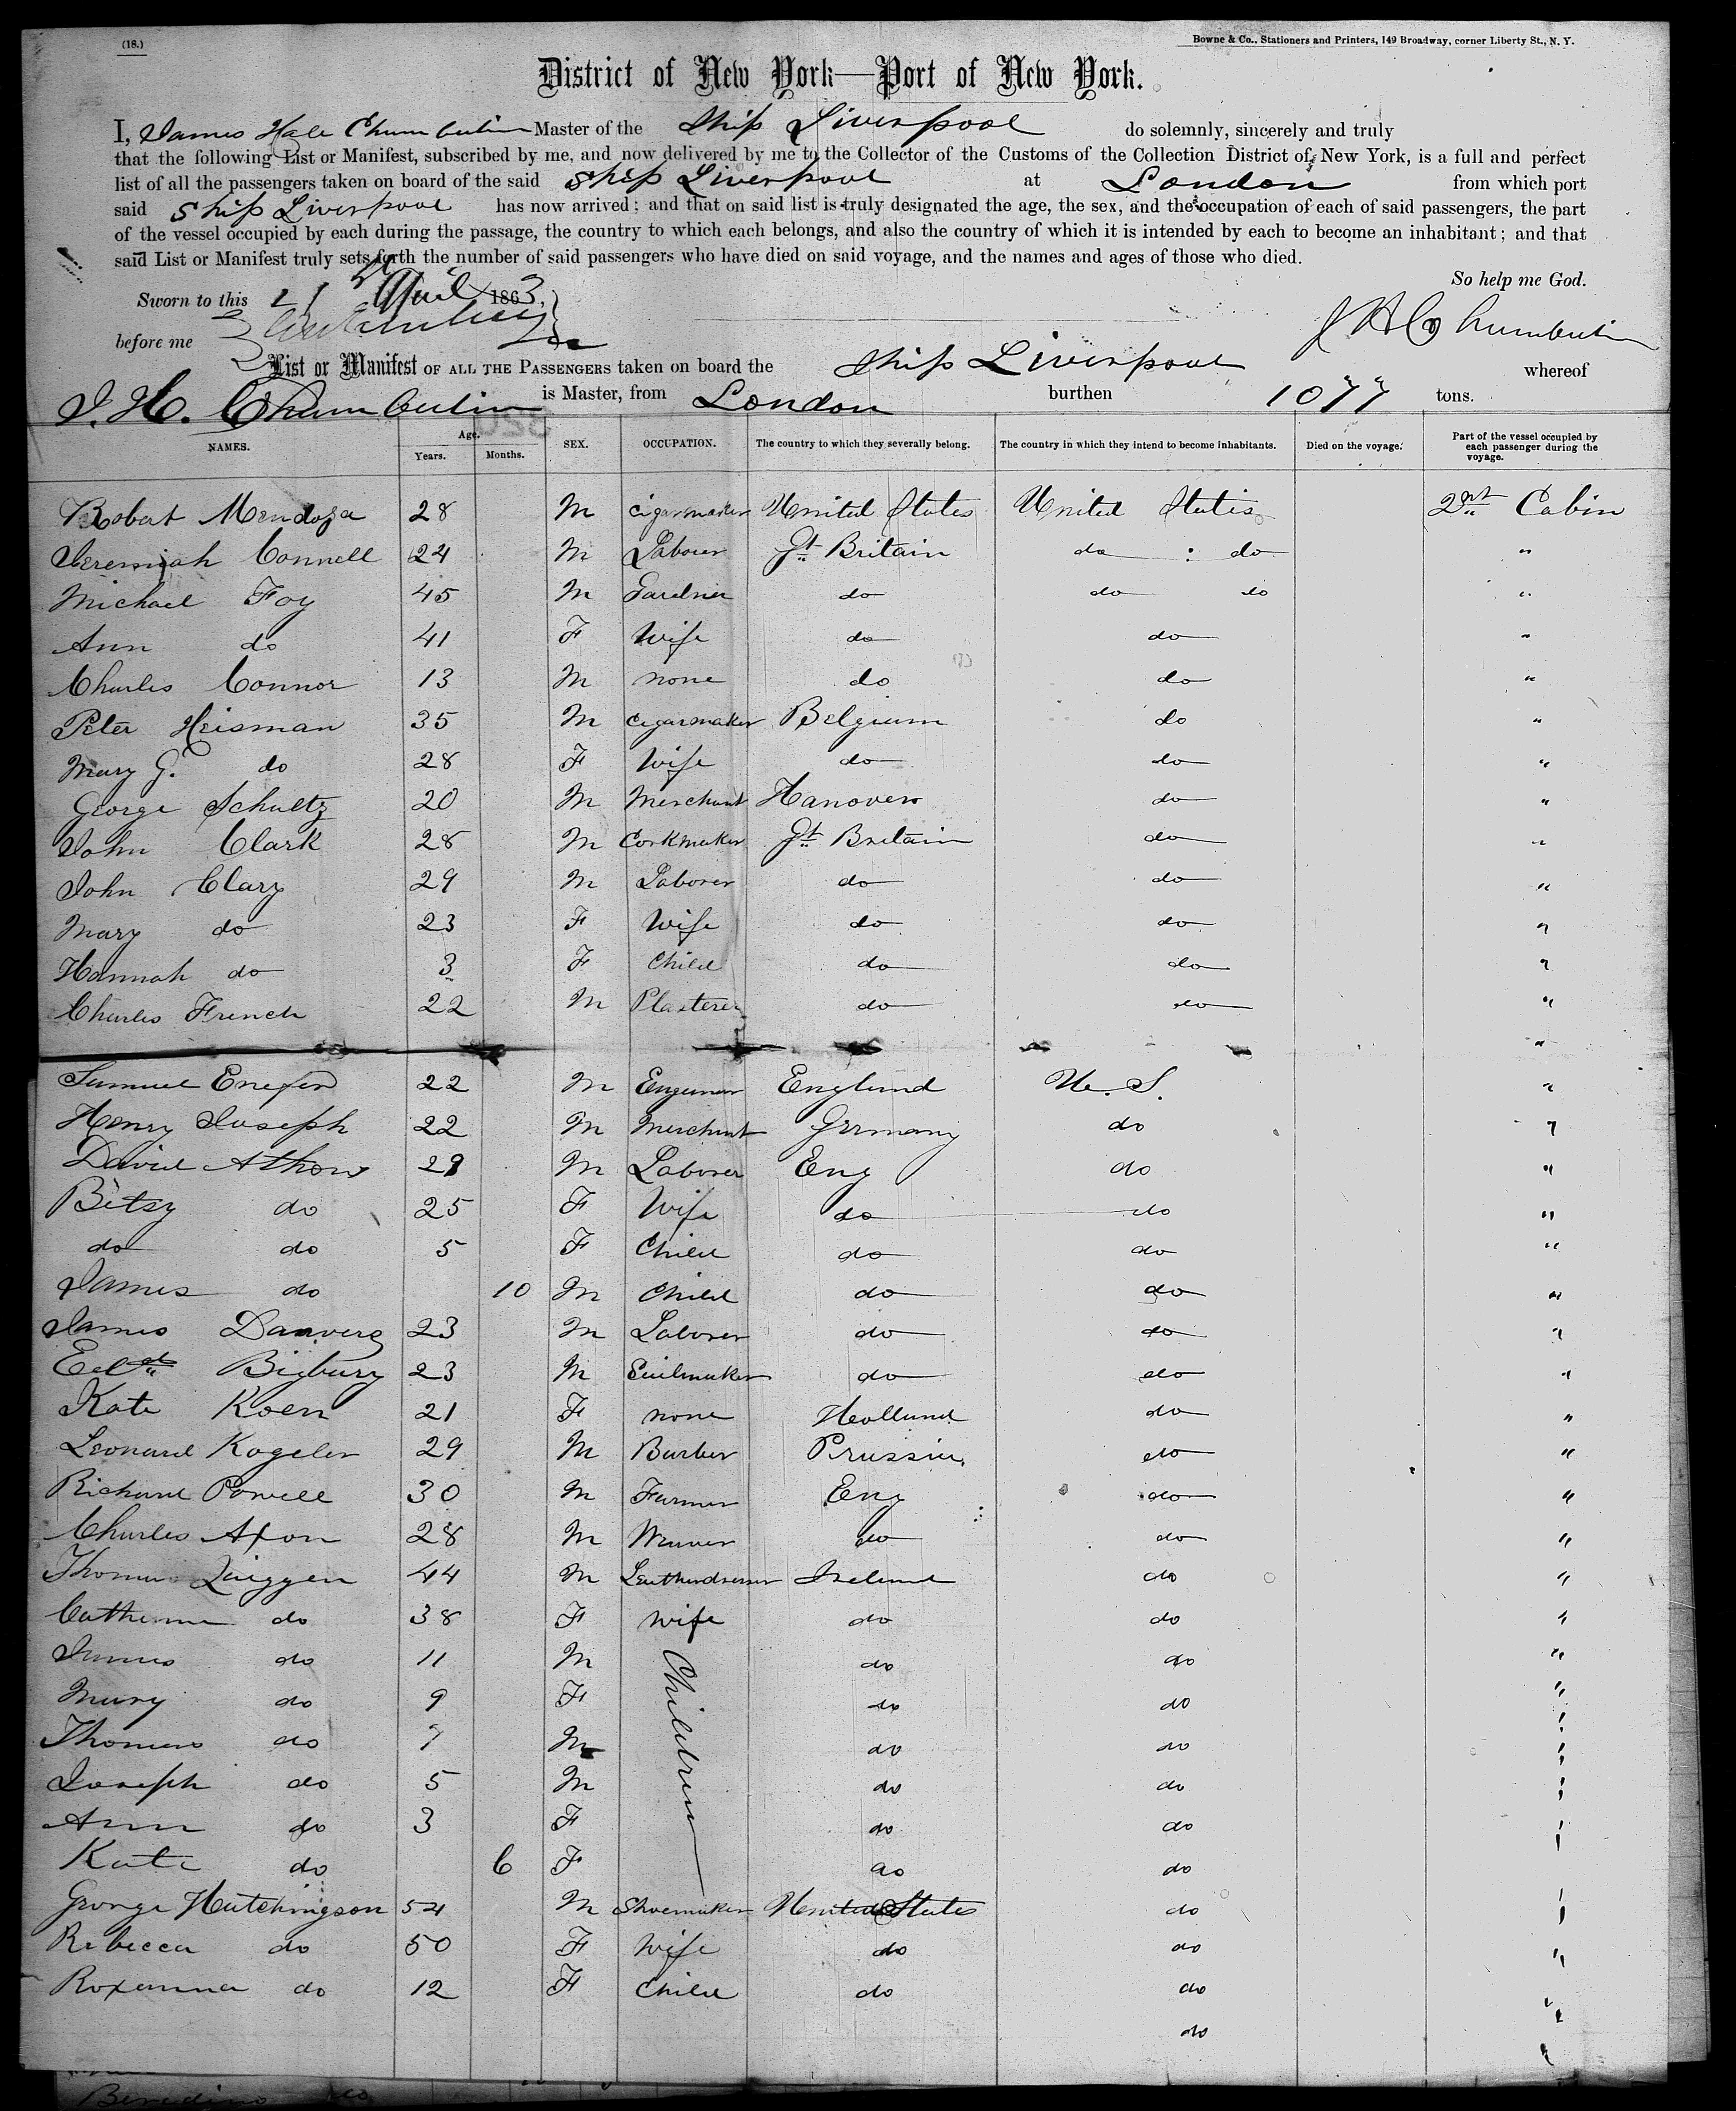 (18.)
Bowne & Co., Stationers and Printers, 149 Broadway, corner Liberty St., N. Y.
District of New York—Port of New York.
I, James Hale Chamberlin Master of the Ship Liverpool do solemnly, sincerely and truly
that the following List or Manifest, subscribed by me, and now delivered by me to the Collector of the Customs of the Collection District of New York, is a full and perfect
list of all the passengers taken on board of the said Ship Liverpool at London from which port
said Ship Liverpool has now arrived; and that on said list is truly designated the age, the sex, and the occupation of each of said passengers, the part
of the vessel occupied by each during the passage, the country to which each belongs, and also the country of which it is intended by each to become an inhabitant; and that
said List or Manifest truly sets forth the number of said passengers who have died on said voyage, and the names and ages of those who died.
So help me God.
Sworn to this 21 April 1863,
before me
List or Manifest OF ALL THE PASSENGERS taken on board the Ship Liverpool whereof
J. H. Chamberlin is Master, from London burthen 1077 tons.
NAMES. Age. Years. Months. SEX. OCCUPATION. The country to which they severally belong. The country in which they intend to become inhabitants. Died on the voyage. Part of the vessel occupied by each passenger during the voyage.
Robert Mendoza 28 M Cigarmaker United States United States 2nd Cabin
Jeremiah Connell 24 M Labourer Gt Britain do do "
Michael Foy 45 M Gardner do do do "
Ann do 41 F Wife do do "
Charles Connor 13 M none do do "
Peter Heisman 35 M Cigarmaker Belgium do "
Mary G. do 28 F Wife do do "
George Schultz 20 M Merchant Hanover do "
John Clark 28 M Corkmaker Gt Britain do "
John Clary 29 M Laborer do do "
Mary do 23 F Wife do do "
Hannah do 3 F Child do do "
Charles French 22 M Plasterer do do "
"
Samuel 22 M Engineer England U. S. "
Henry Joseph 22 M Merchant Germany do "
David Athow 29 M Laborer Eng do "
Betsy do 25 F Wife do do "
do do 5 F Child do do "
James do 10 M Child do do "
James Danvers 23 M Laborer do do "
Edwd Bigbury 23 M Sailmaker do do "
Kate Koen 21 F none Holland do "
Leonard Kogeler 29 M Barber Prussia do "
Richard Powell 30 M Farmer Eng do "
Charles Axon 28 M Weaver do do "
Thomas Quiggen 44 M Leatherdresser Ireland do "
Catherine do 38 F Wife do do "
James do 11 M Children do do "
Mary do 9 F do do "
Thomas do 7 M do do "
Joseph do 5 M do do "
Ann do 3 F do do "
Kate do 6 F do do
George Hutchingson 54 M Shoemaker United States do "
Rebecca do 50 F Wife do do "
Roxanna do 12 F Child do do "
do "